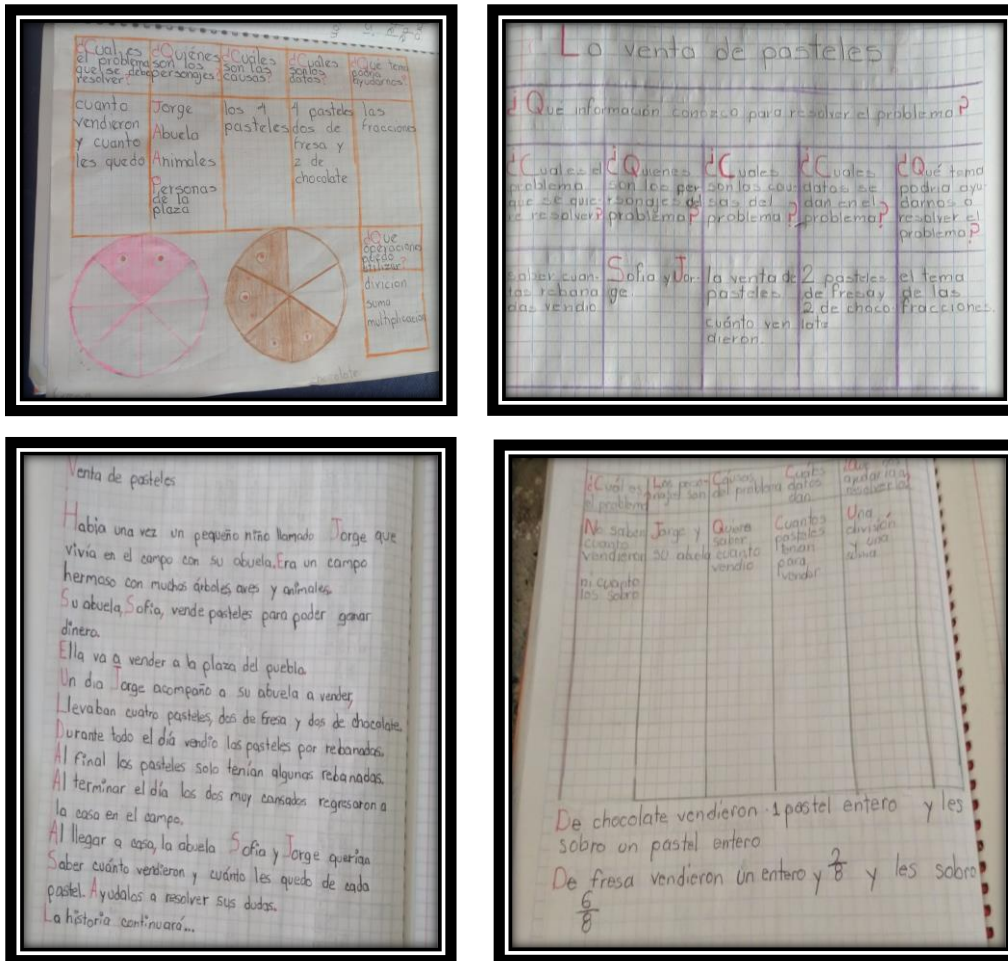 ¿Cual es
el problema
que se debe
resolver?
¿Quiénes
son los
personajes?
¿Cuáles
son las
causas?
¿Cuales
son los
datos?
¿Que tema
podria
ayudarnos?
cuanto
vendieron
y cuanto
les quedo
Jorge
Abuela
Animales
Personas
de la
plaza
los 4
pasteles
4 pasteles
dos de
fresa y
2 de
chocolate
las
fracciones
¿Que
operaciones
puedo
utilizar?
divicion
suma
multiplicacion
chocolate
La venta de pasteles
¿Que información conozco para resolver el problema?
¿Cual es el
problema
que se quie-
re resolver?
¿Quienes
son los per
sonajes del
problema?
¿Cuales
son las cau-
sas del
problema?
¿Cuales
datos se
dan en el
problema?
¿Qué tema
podria ayu-
darnos a
resolver el
problema?
saber cuan-
tas rebana
das vendio
Sofia y Jor-
ge.
la venta de
pasteles
cuánto ven
dieron.
2 pasteles
de fresa y
2 de choco
late
el tema
de las
fracciones.
Venta de pasteles
Habia una vez un pequeño niño llamado Jorge que
vivia en el campo con su abuela. Era un campo
hermoso con muchos árboles, aves y animales.
Su abuela, Sofia, vende pasteles para poder ganar
dinero.
Ella va a vender a la plaza del pueblo.
Un dia Jorge acompaño a su abuela a vender,
Llevaban cuatro pasteles, dos de fresa y dos de chocolate.
Durante todo el día vendio los pasteles por rebanadas.
Al final los pasteles solo tenían algunas rebanadas.
Al terminar el día los dos muy cansados regresaron a
la casa en el campo.
Al llegar a casa, la abuela Sofia y Jorge querían
Saber cuánto vendieron y cuánto les quedo de cada
pastel. Ayudalos a resolver sus dudas.
La historia continuará...
¿Cuál es
el problema
Los perso-
najes son
Causas
del problema
Cuales
datos
dan
No saber
cuanto
vendieron
ni cuanto
les sobro
Jorge y
su abuela
Quiere
saber
cuanto
vendio
Cuantos
pasteles
tenian
para
vender
Una
división
y una
De chocolate vendieron 1 pastel entero y les
sobro un pastel entero
De fresa vendieron un entero y 2/8 y les sobro
6/8